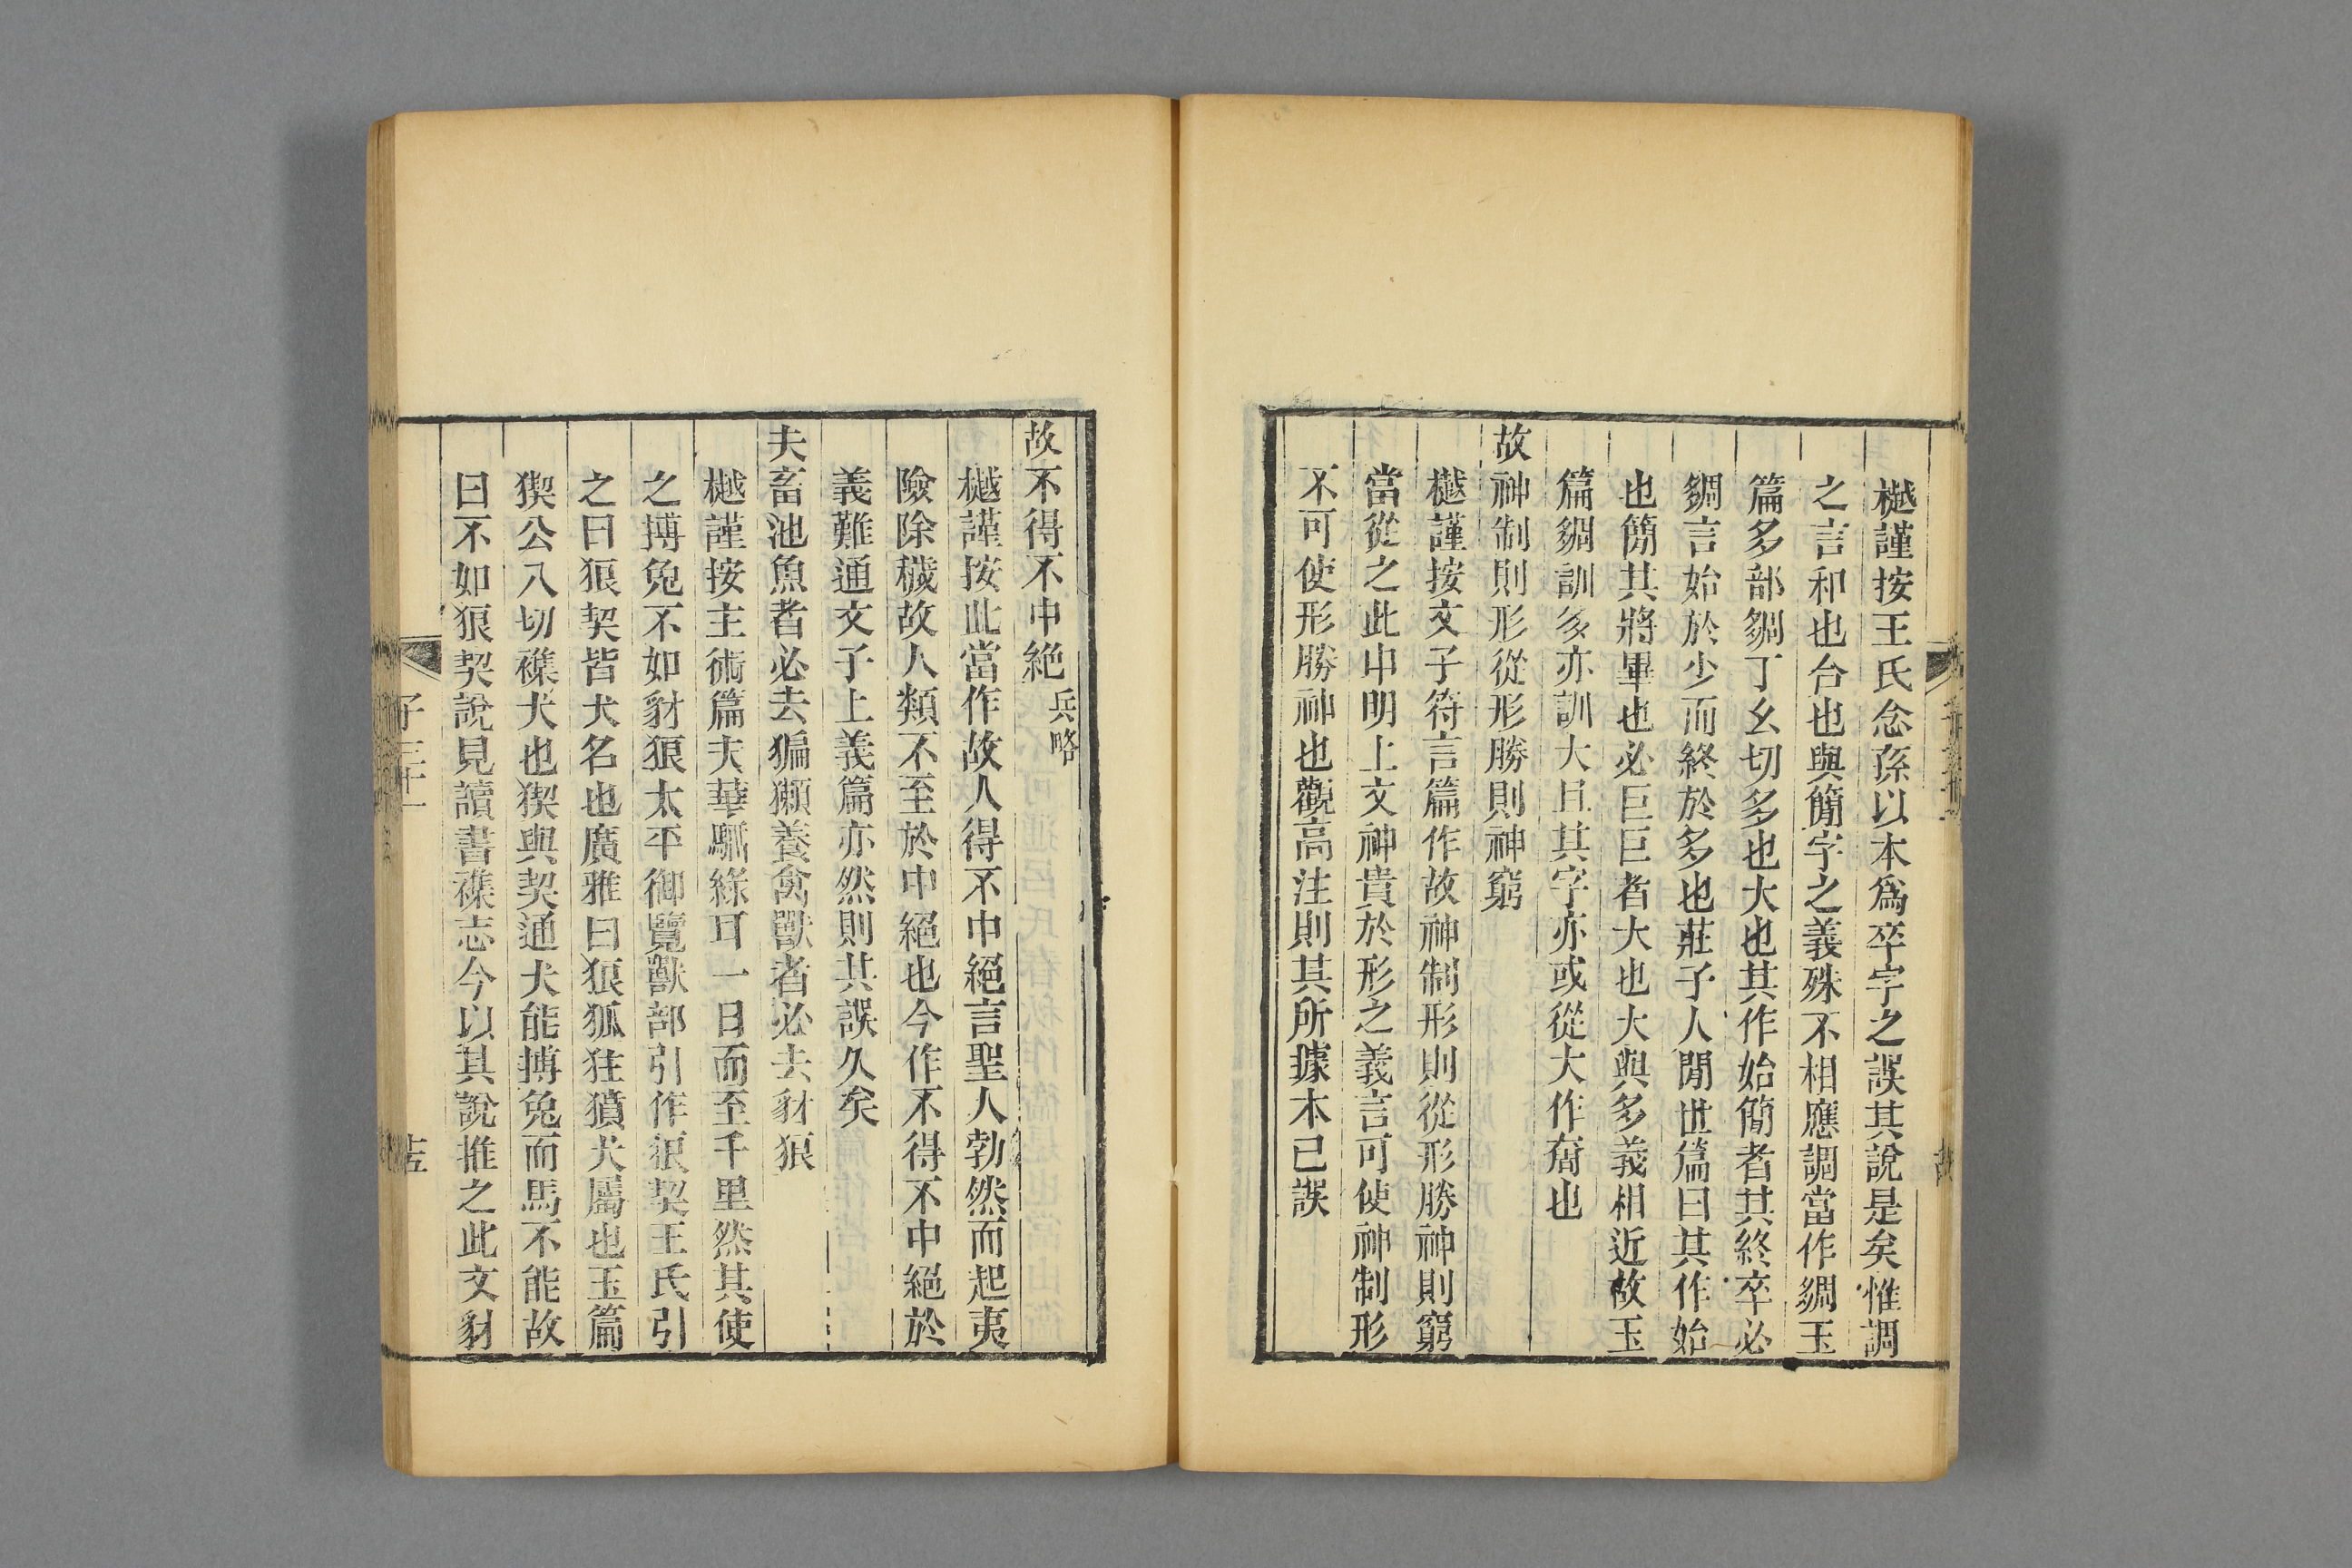 樾謹按王氏念孫以本爲卒字之誤其說是矣惟調
之言和也合也與簡字之義殊不相應調當作綢玉
篇多部綢丁幺切多也大也其作始簡者其終卒必
綢言始於少而終於多也莊子人閒世篇曰其作始
也簡其將畢也必巨巨者大也大與多義相近故玉
篇綢訓多亦訓大且其字亦或從大作奝也
故神制則形從形勝則神窮
樾謹按文子符言篇作故神制形則從形勝神則窮
當從之此申明上文神貴於形之義言可使神制形
不可使形勝神也觀高注則其所據本已誤
故不得不中絕兵略
樾謹按此當作故人得不中絕言聖人勃然而起夷
險除穢故人類不至於中絕也今作不得不中絕於
義難通文子上義篇亦然則其誤久矣
夫畜池魚者必去猵獺養禽獸者必去豺狼
樾謹按主術篇夫華騮綠耳一日而至千里然其使
之搏兔不如豺狼太平御覽獸部引作狼契王氏引
之曰狼契皆犬名也廣雅曰狼狐狂獚犬屬也玉篇
猰公八切襍犬也猰與契通犬能搏兔而馬不能故
曰不如狼契說見讀書襍志今以其說推之此文豺
子三十一